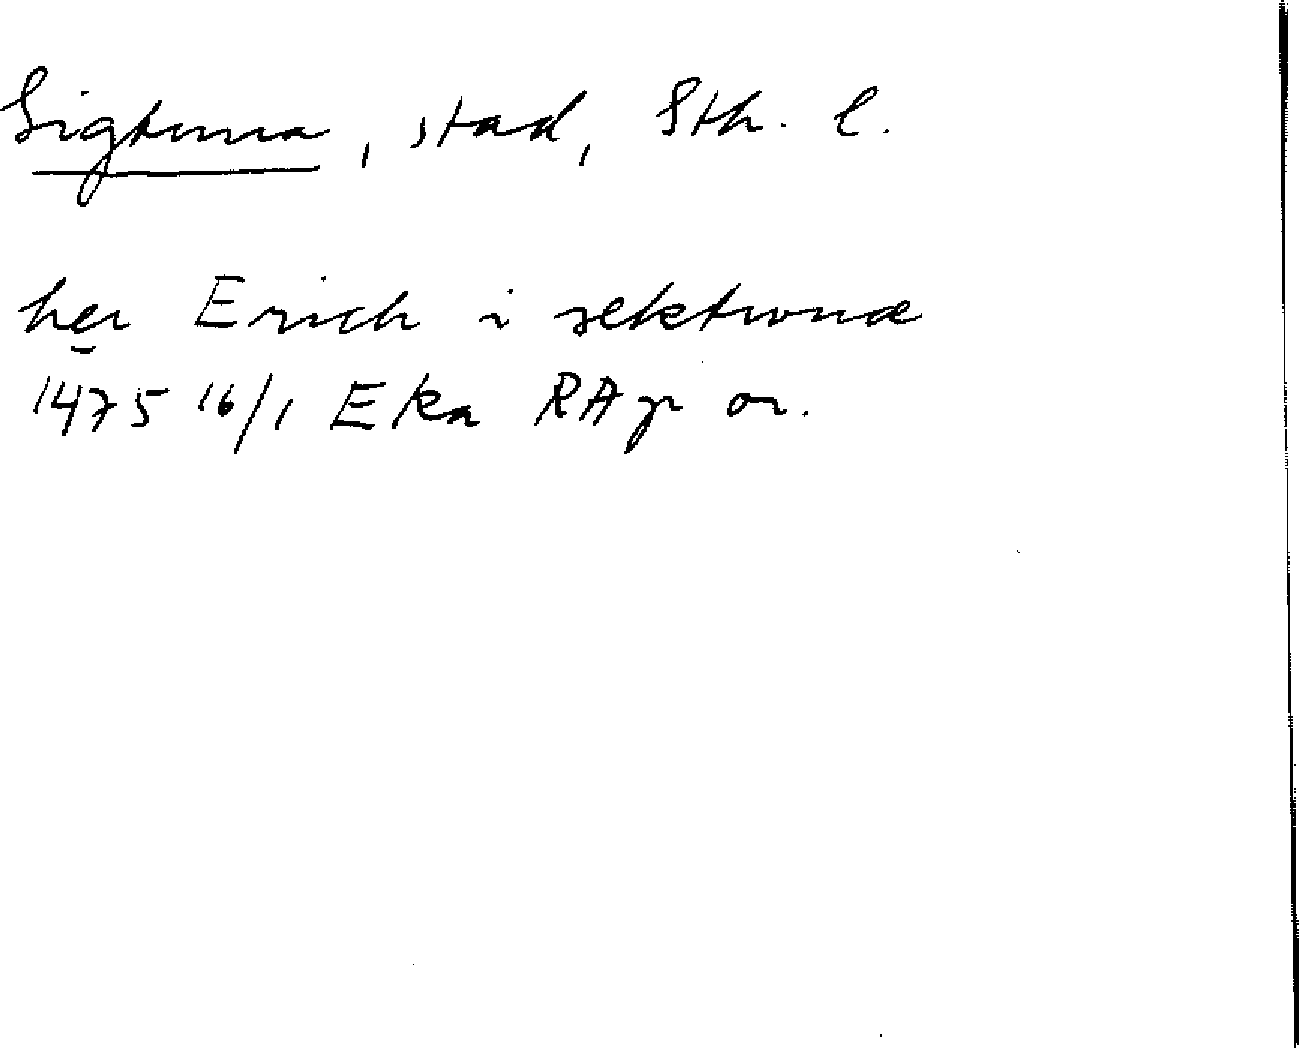 Sigtuna, stad, Sth. l.
her Erich i sektwnæ
1475 16/1 Eka RAp or.